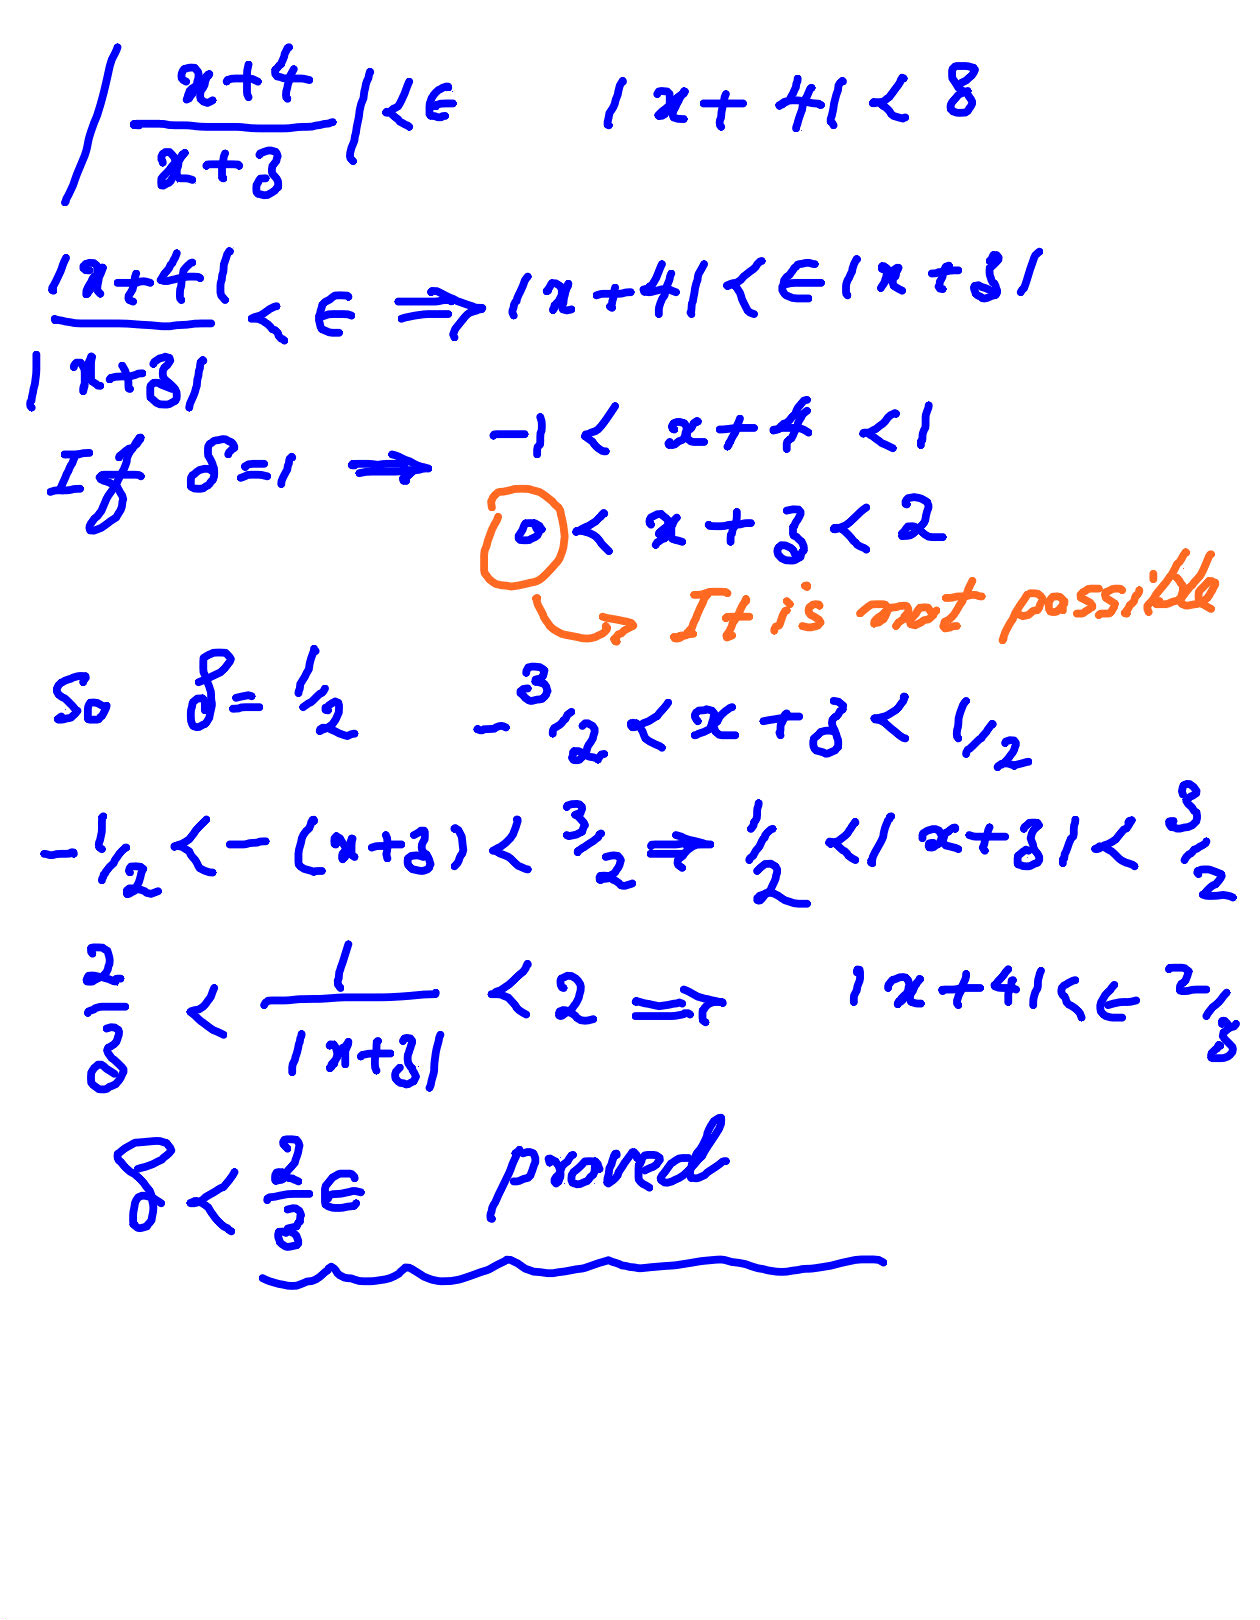 | x+4 / x+3 | < ϵ    | x + 4 | < 8
|x+4| / |x+3| < ϵ ⇒ |x+4| < ϵ |x+3|
If δ=1 ⇒ -1 < x+4 < 1
0 < x + 3 < 2
It is not possible
So δ = 1/2    -3/2 < x+3 < 1/2
-1/2 < -(x+3) < 3/2 ⇒ 1/2 < | x+3 | < 3/2
2/3 < 1 / |x+3| < 2 ⇒ | x+4 | < ϵ 2/3
δ < 2/3 ϵ    proved